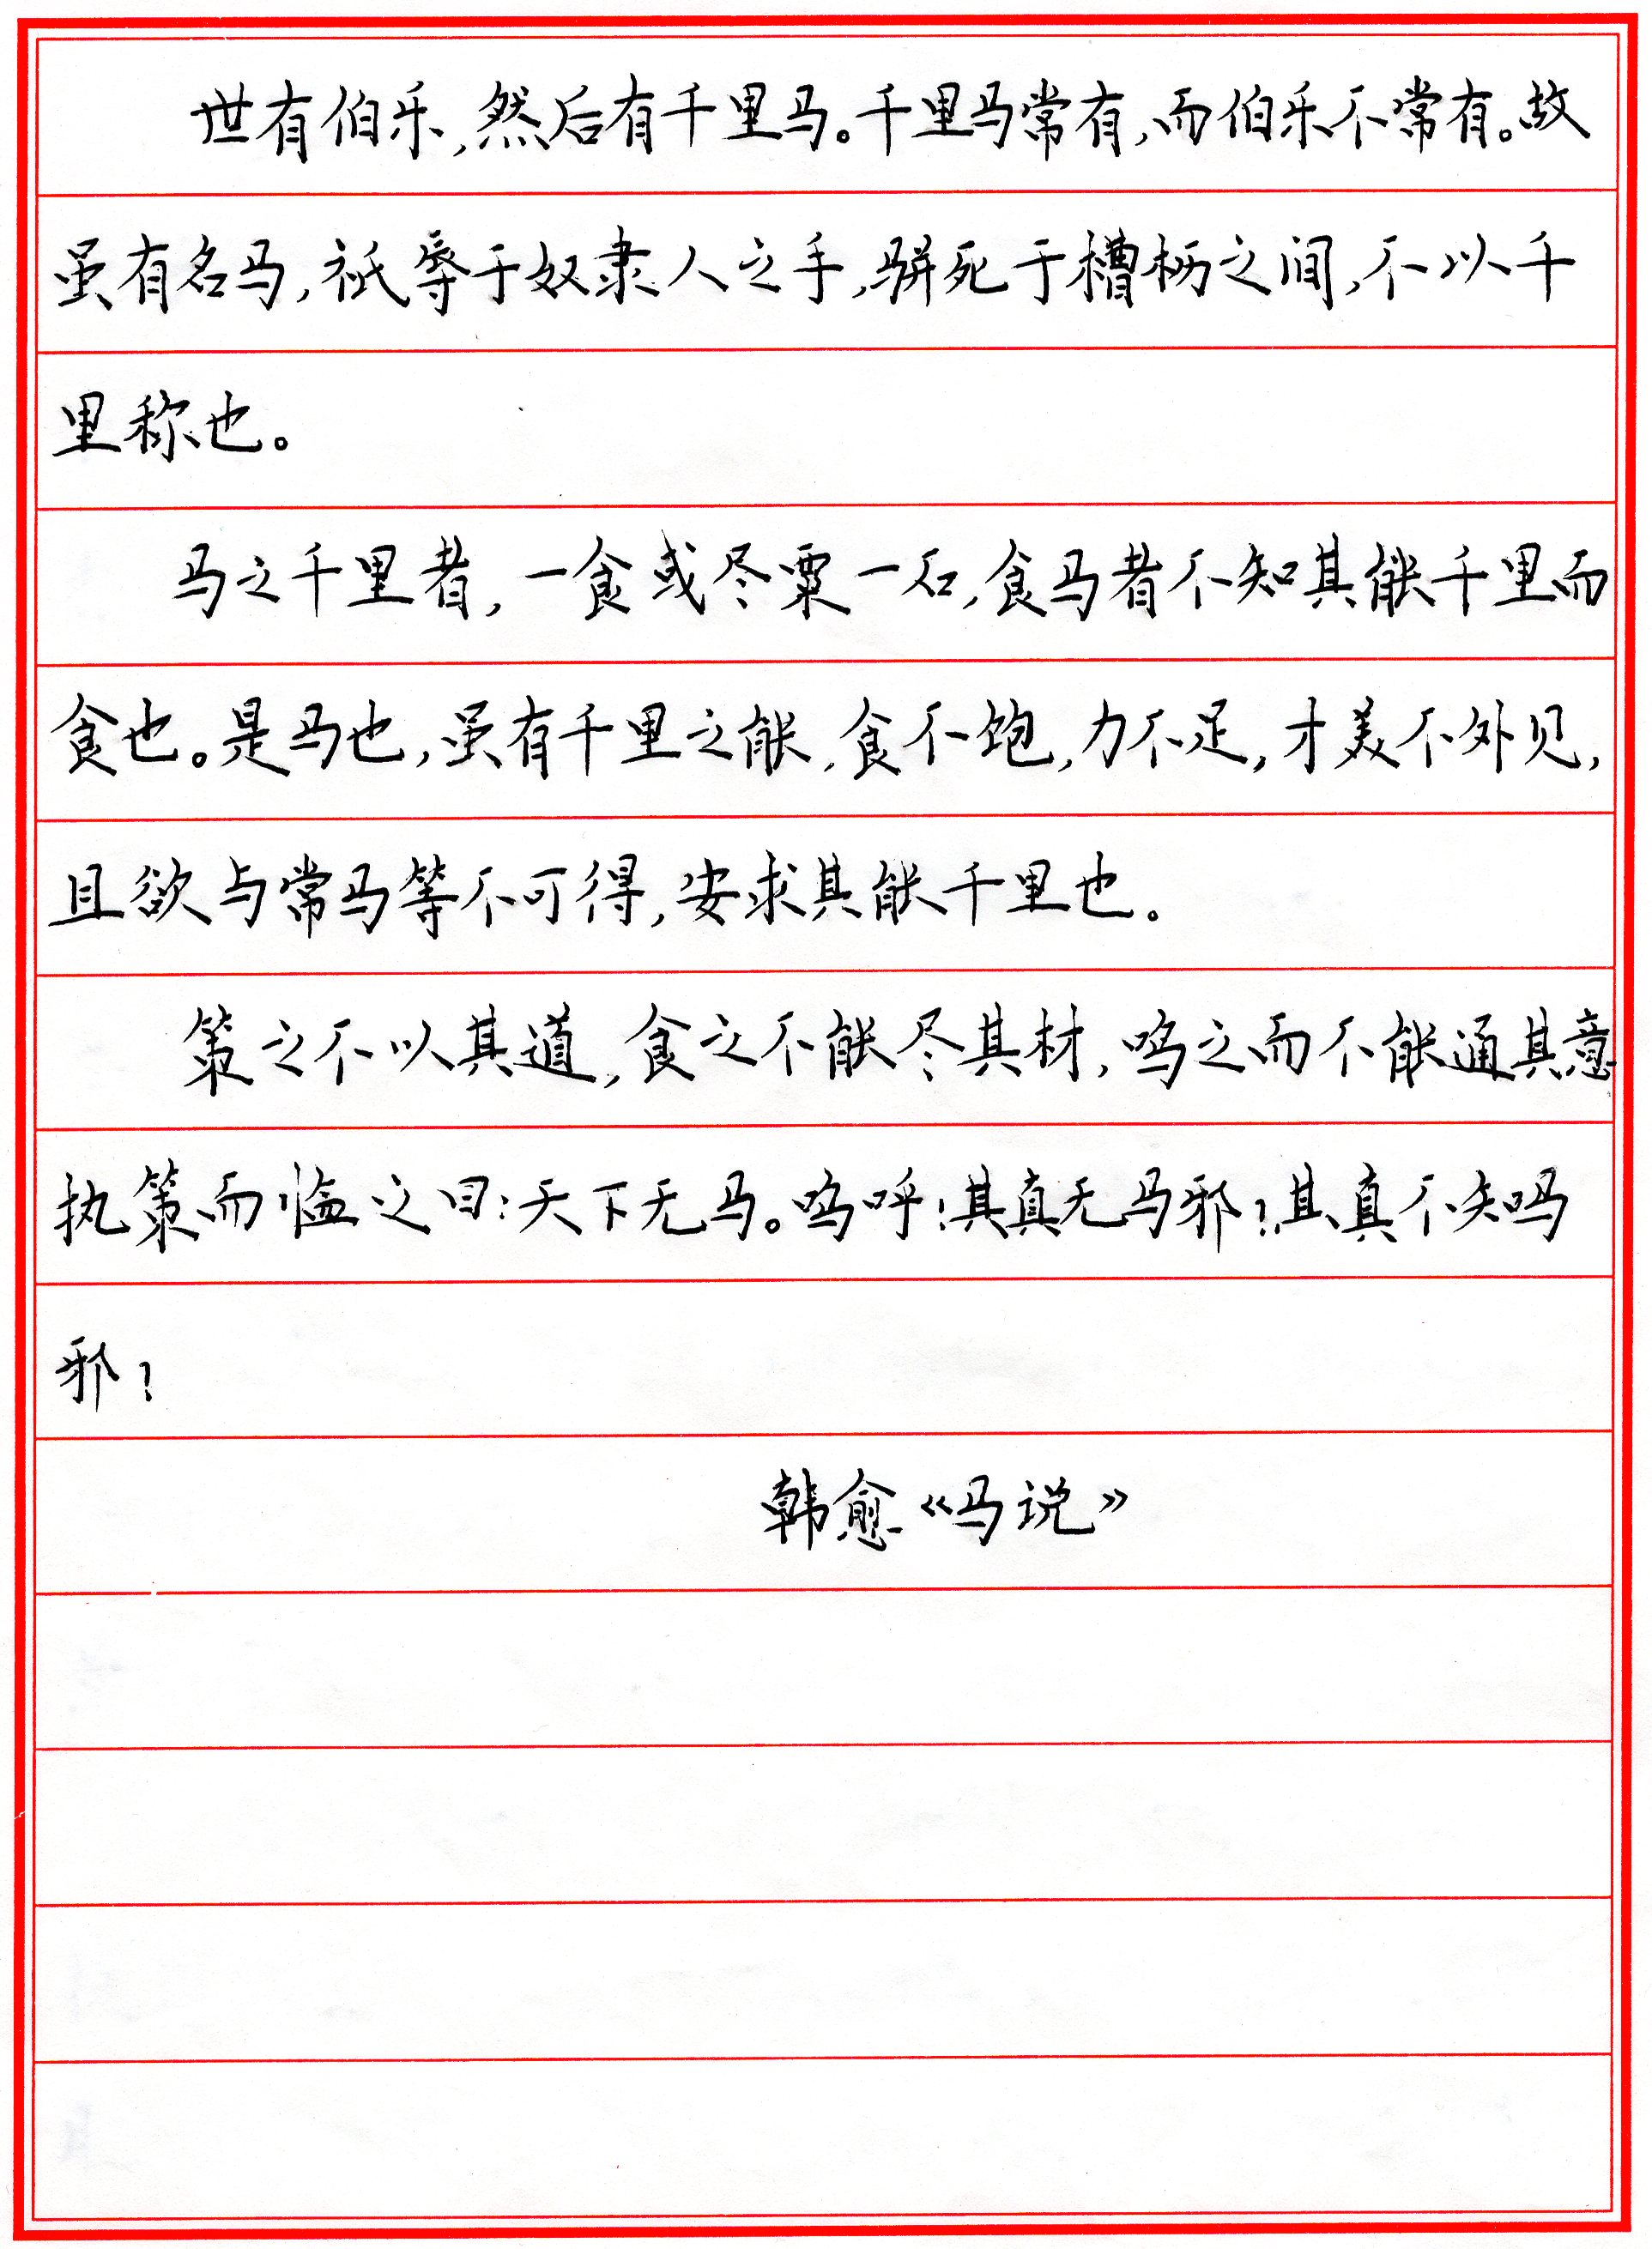 世有伯乐,然后有千里马。千里马常有,而伯乐不常有。故
虽有名马,祇辱于奴隶人之手,骈死于槽枥之间,不以千
里称也。
马之千里者,一食或尽粟一石,食马者不知其能千里而
食也。是马也,虽有千里之能,食不饱,力不足,才美不外见,
且欲与常马等不可得,安求其能千里也。
策之不以其道,食之不能尽其材,鸣之而不能通其意
执策而临之曰:天下无马。呜呼!其真无马邪?其真不知马
邪?
韩愈《马说》